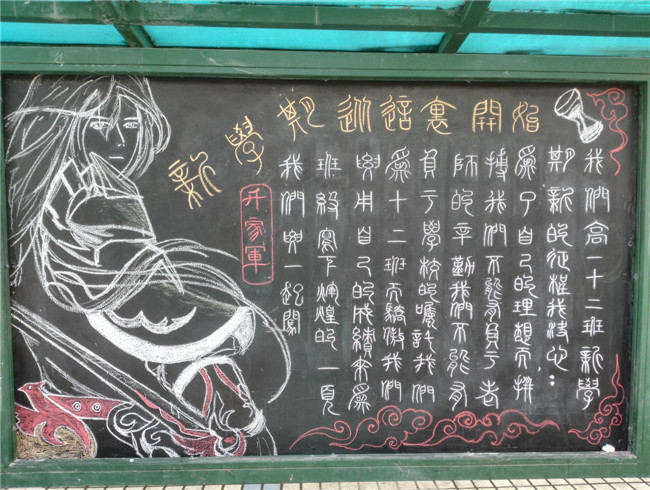 新學期從這裏開始
我們高一十二班新學
期新的征程我決心：
爲了自己的理想而拼
搏我們不能負了老
師的辛勤我們不能有
負了學校的囑託我們
爲十二班而驕傲我們
要用自己的成績來爲
班級寫下輝煌的一頁
我們要一起闖
家軍